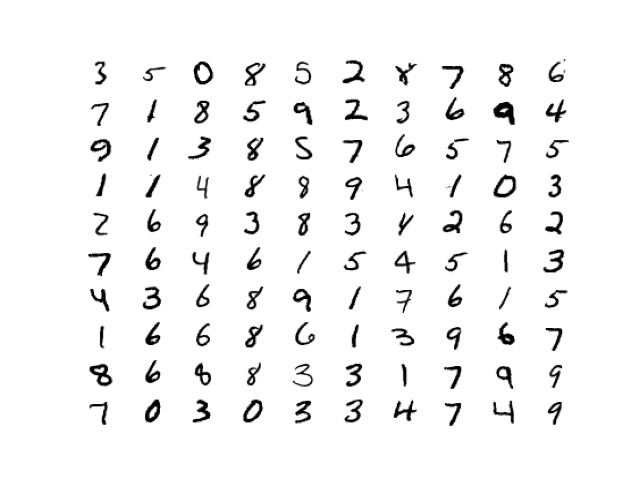 3 5 0 8 5 2 8 7 8 6
7 1 8 5 9 2 3 6 9 4
9 1 3 8 5 7 6 5 7 5
1 1 4 8 8 9 4 1 0 3
2 6 9 3 8 3 4 2 6 2
7 6 4 6 1 5 4 5 1 3
4 3 6 8 9 1 7 6 1 5
1 6 6 8 6 1 3 9 6 7
8 6 8 8 3 3 1 7 9 9
7 0 3 0 3 3 4 7 4 9